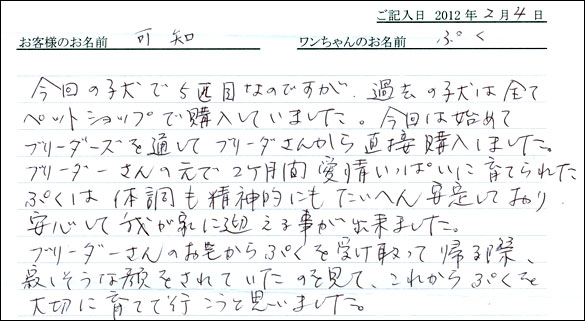 ご記入日 2012年2月4日
お客様のお名前 可知 ワンちゃんのお名前 ぷく
今回の子犬で5匹目なのですが、過去の子犬は全て
ペットショップで購入していました。今回は始めて
ブリーダーズを通してブリーダさんから直接購入しました。
ブリーダーさんの元で2ヶ月間愛情いっぱいに育てられた
ぷくは体調も精神的にもたいへん安定しており、
安心して我が家に迎える事が出来ました。
ブリーダーさんのお宅からぷくを受け取って帰る際、
寂しそうな顔をされていたのを見て、これからぷくを
大切に育てて行こうと思いました。